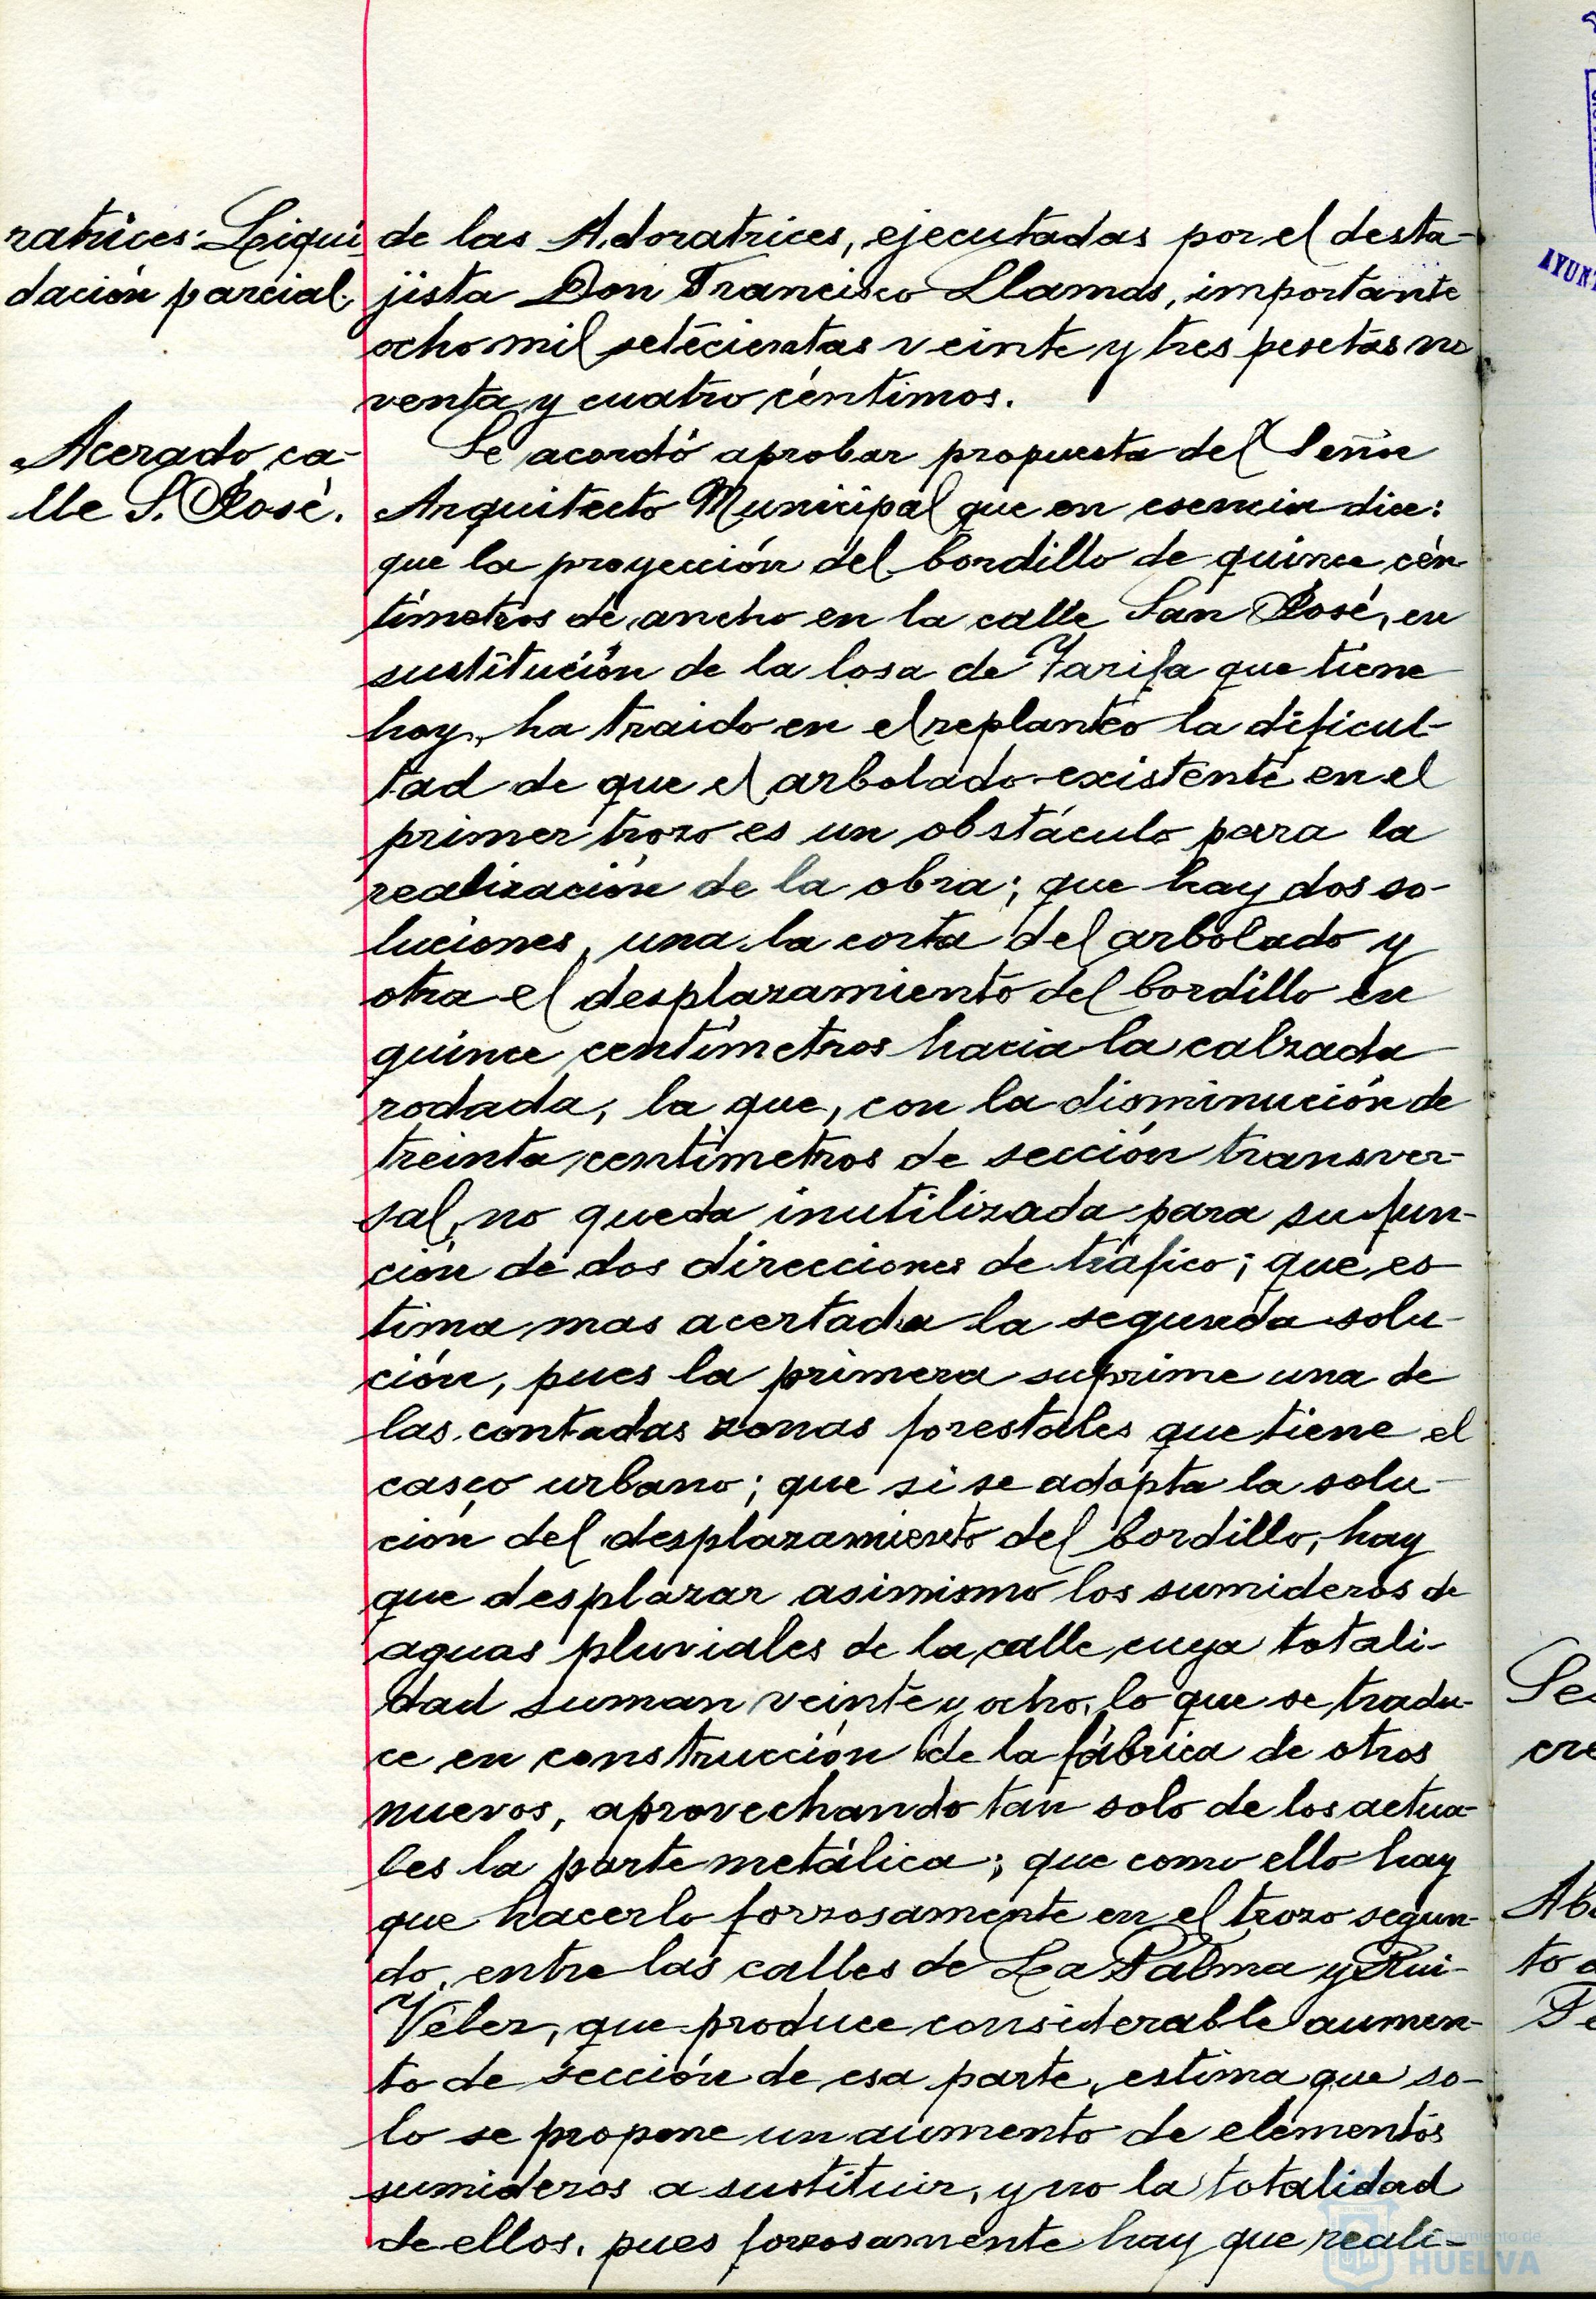 ratrices: Liqui
dación parcial.
de las Adoratrices, ejecutadas por el desta-
jista Don Francisco Llamas, importante
ocho mil setecientas veinte y tres pesetas no
venta y cuatro céntimos.
Acerado ca-
lle S. José.
Se acordó aprobar propuesta del Señor
Arquitecto Municipal que en esencia dice:
que la proyección del bordillo de quince cen-
tímetros de ancho en la calle San José, en
sustitución de la losa de Tarifa que tiene
hoy, ha traido en el replanteo la dificul-
tad de que el arbolado existente en el
primer trozo es un obstáculo para la
realización de la obra; que hay dos so-
luciones, una la corta del arbolado y
otra el desplazamiento del bordillo en
quince centímetros hacia la calzada
rodada, la que, con la disminución de
treinta centímetros de sección transver-
sal, no queda inutilizada para su fun-
ción de dos direcciones de tráfico; que es
tima mas acertada la segunda solu-
ción, pues la primera suprime una de
las contadas zonas forestales que tiene el
casco urbano; que si se adopta la solu-
ción del desplazamiento del bordillo, hay
que desplazar asimismo los sumideros de
aguas pluviales de la calle cuya totali-
dad suman veinte y ocho, lo que se tradu-
ce en construcción de la fábrica de otros
nuevos, aprovechando tan solo de los actua-
les la parte metálica; que como ello hay
que hacerlo forzosamente en el trozo segun-
do, entre las calles de La Palma y Rui-
Vélez, que produce considerable aumen-
to de sección de esa parte, estima que so-
lo se propone un aumento de elementos
sumideros a sustituir, y no la totalidad
de ellos, pues forzosamente hay que reali-
Ayuntamiento de
HUELVA